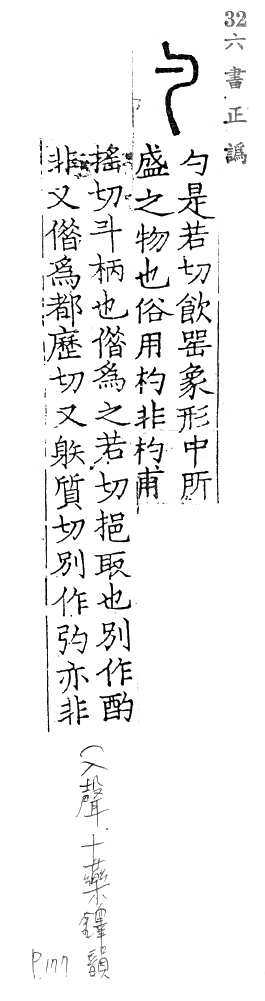 32六書正譌
勺是若切飲器象形中所
盛之物也俗用杓非杓甫
搖切斗柄也偺爲之若切挹取也別作酌
非又偺爲都歷切又䠶質切別作彴亦非
(入聲十藥鐸韻
P.177